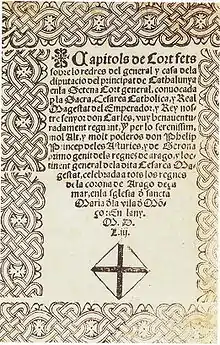 Capitols de Cort fets
sobre lo redres del general y casa de la
diputacio del principat de Cathalunya
en la Setena Cort general, convocada
y la Sacra, Cesarea Catholica, y Real
Magestat del Emperador, y Rey nos
tre senyor don Carles, vuy benauentu
radament regnant. Y per lo serenissim,
mol Alt, y molt poderos don Phelip
Princep de les Asturies, y de Gerona
primo genit de les regnes de arago, y loc
tinent general de la dita Cesarea Ma
gestat, celebrada a tots los regnes
de la corona de Arago de la
mar, en la Iglesia d sancta
Maria dla vila d Mō
ço: En lany.
M. D.
L. iij.